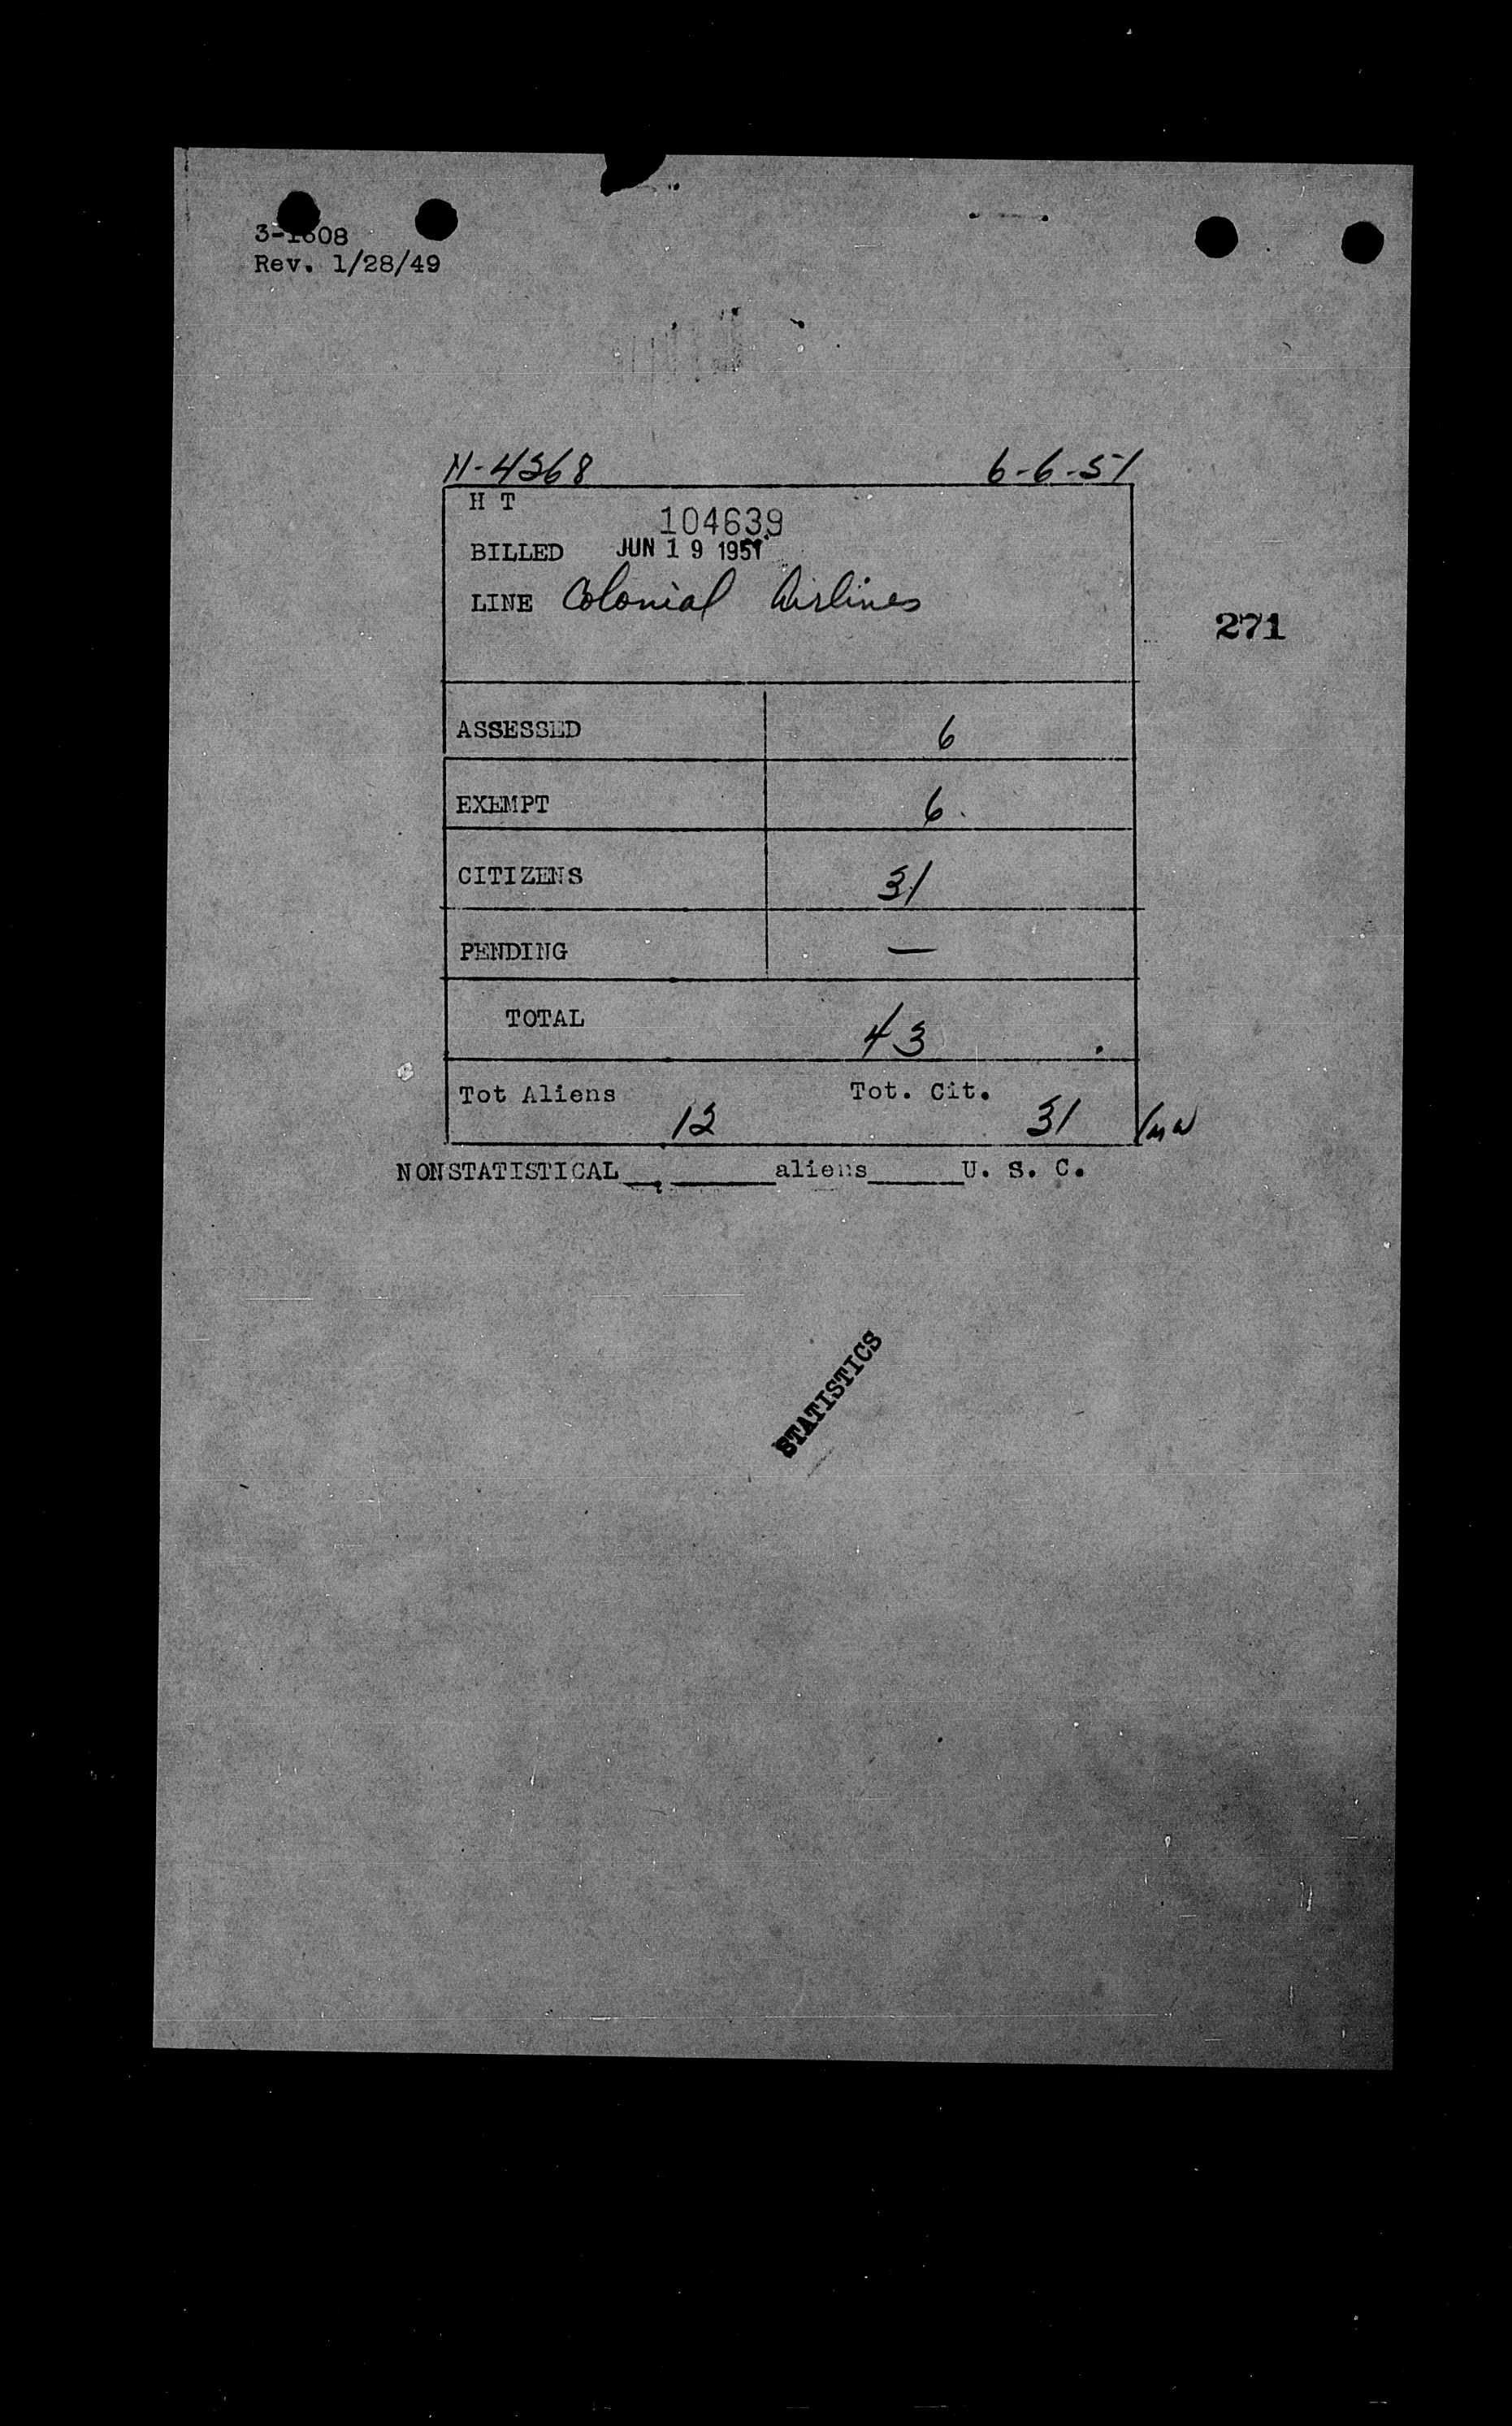 3-1608
Rev. 1/28/49
N-4368 6-6-51
H T
104639
BILLED JUN 19 1951
LINE Colonial Airlines
271
ASSESSED 6
EXEMPT 6
CITIZENS 31
PENDING —
TOTAL 43
Tot Aliens 12 Tot. Cit. 31
NONSTATISTICAL___ ______aliens______U. S. C.
STATISTICS